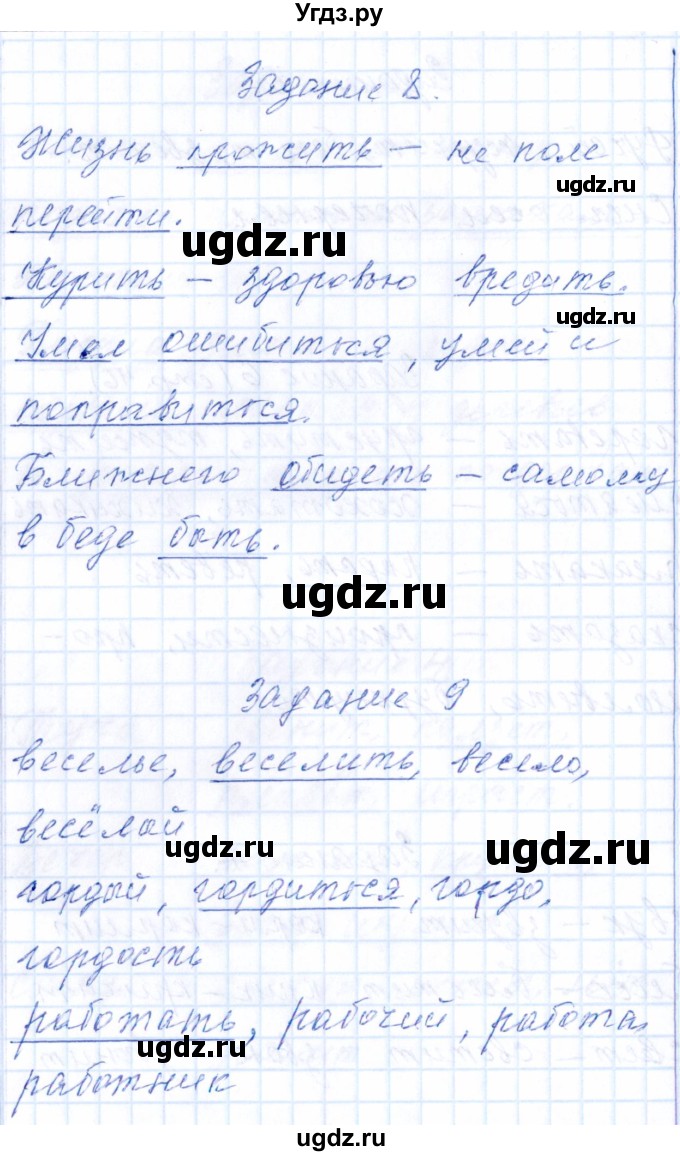 Угдз.ру
Задание 8.
Жизнь прожить – не поле
ugdz.ru
перейти.
ugdz.ru
Курить – здоровью вредить.
ugdz.ru
Умел ошибиться, умей и
поправиться.
Ближнего обидеть – самому
в беде быть.
ugdz.ru
Задание 9
веселье, веселить, весело,
весёлый
ugdz.ru
ugdz.ru
гордый, гордиться, гордо,
гордость
работать, рабочий, работа,
ugdz.ru
работник
ugdz.ru